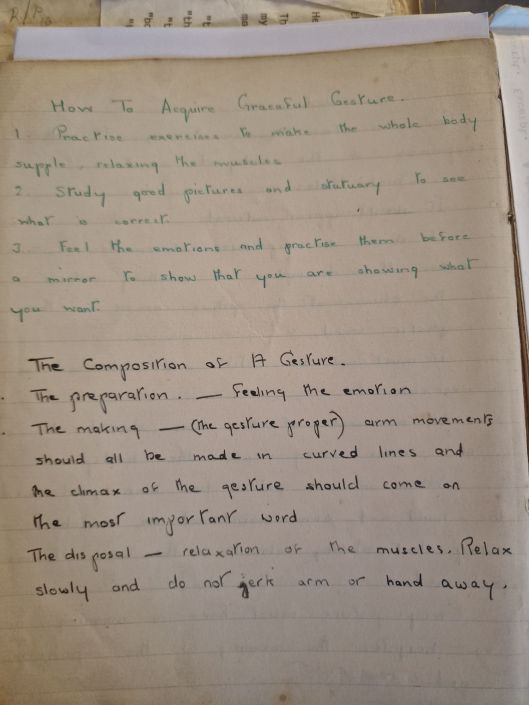 How To Acquire Graceful Gesture.
1. Practise exercises to make the whole body
supple, relaxing the muscles
2. Study good pictures and statuary to see
what is correct.
3. Feel the emotions and practise them before
a mirror to show that you are showing what
you want.
The Composition of A Gesture.
The preparation. — feeling the emotion
The making — (the gesture proper) arm movements
should all be made in curved lines and
the climax of the gesture should come on
the most important word
The disposal — relaxation of the muscles. Relax
slowly and do not jerk arm or hand away.